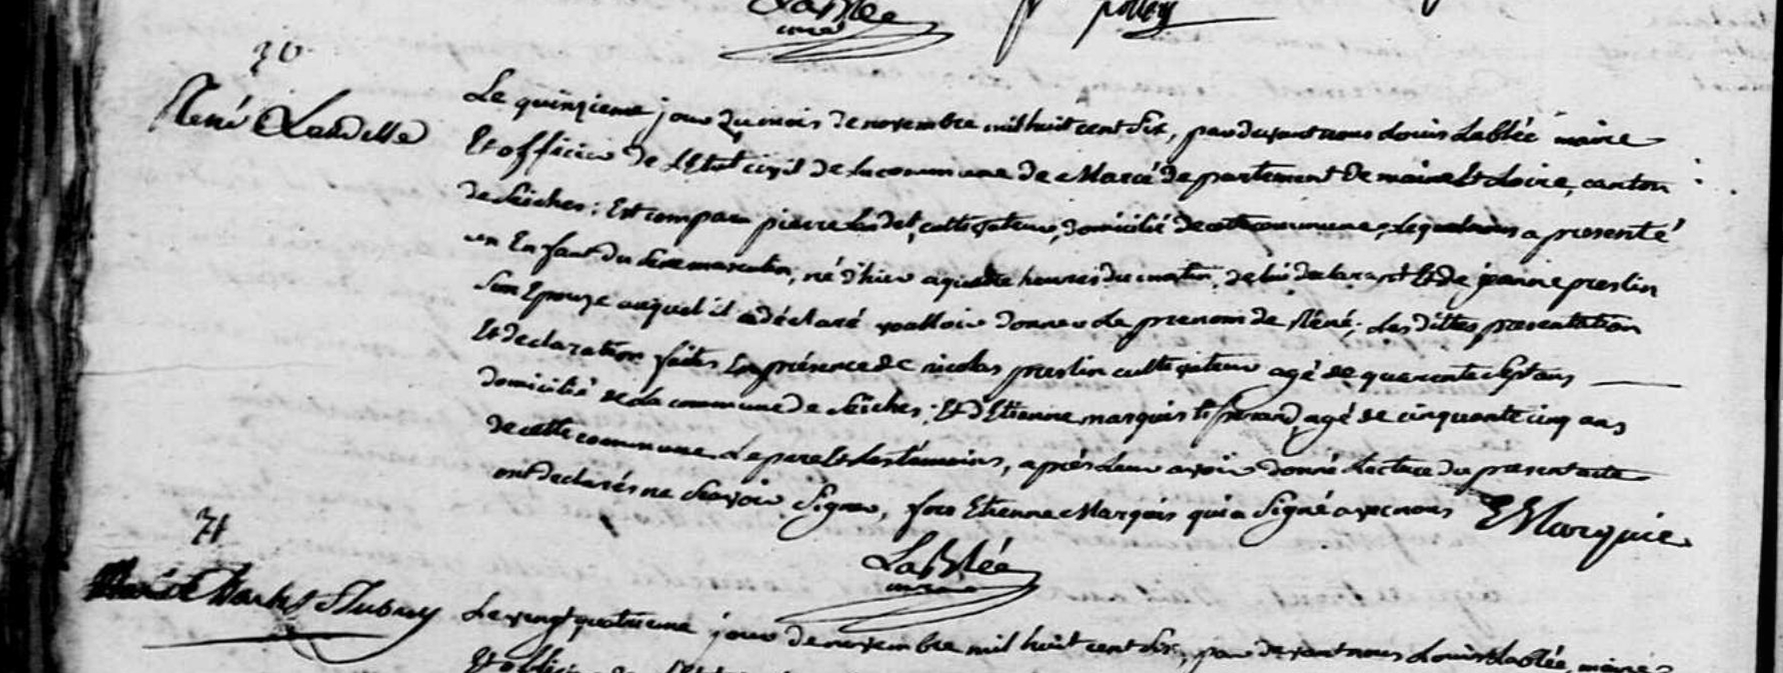 LaBlée
maire
70
René Landelle
Le quinzieme jour du mois de novembre mil huit cent dix, pardevant nous Louis Lablée maire
Et officier de L'Etat civil de la commune de Marcé departement de maine Et Loire, canton
de Seiches; Est comparu pierre landel, cultivateur, domicilié de cette commune, lequel nous a presenté
un Enfant du sexe masculin, né d'hier a quatre heures du matin, de lui declarant Et de jeanne preslin
Son Epouze auquel il a déclaré vouloir donner Le prenom de Réné. Les dittes presentation
Et declaration faites En présence de nicolas preslin cultivateur agé de quarente Sept ans
domicilié de La commune de Seiches; Et d'Etienne marquis agé de cinquante cinq ans
de cette commune Le pere Et les témoins, après Leur avoir donné Lecture du present acte
ont declarés ne Savoir Signer, fors Etienne Marquis qui a Signé avec nous E Marquis
LaBlée
maire
71
Charles Aubry
Le vingt quatrieme jour de novembre mil huit cent dix, par devant nous Louis Lablée, maire
Et officier de L'Etat